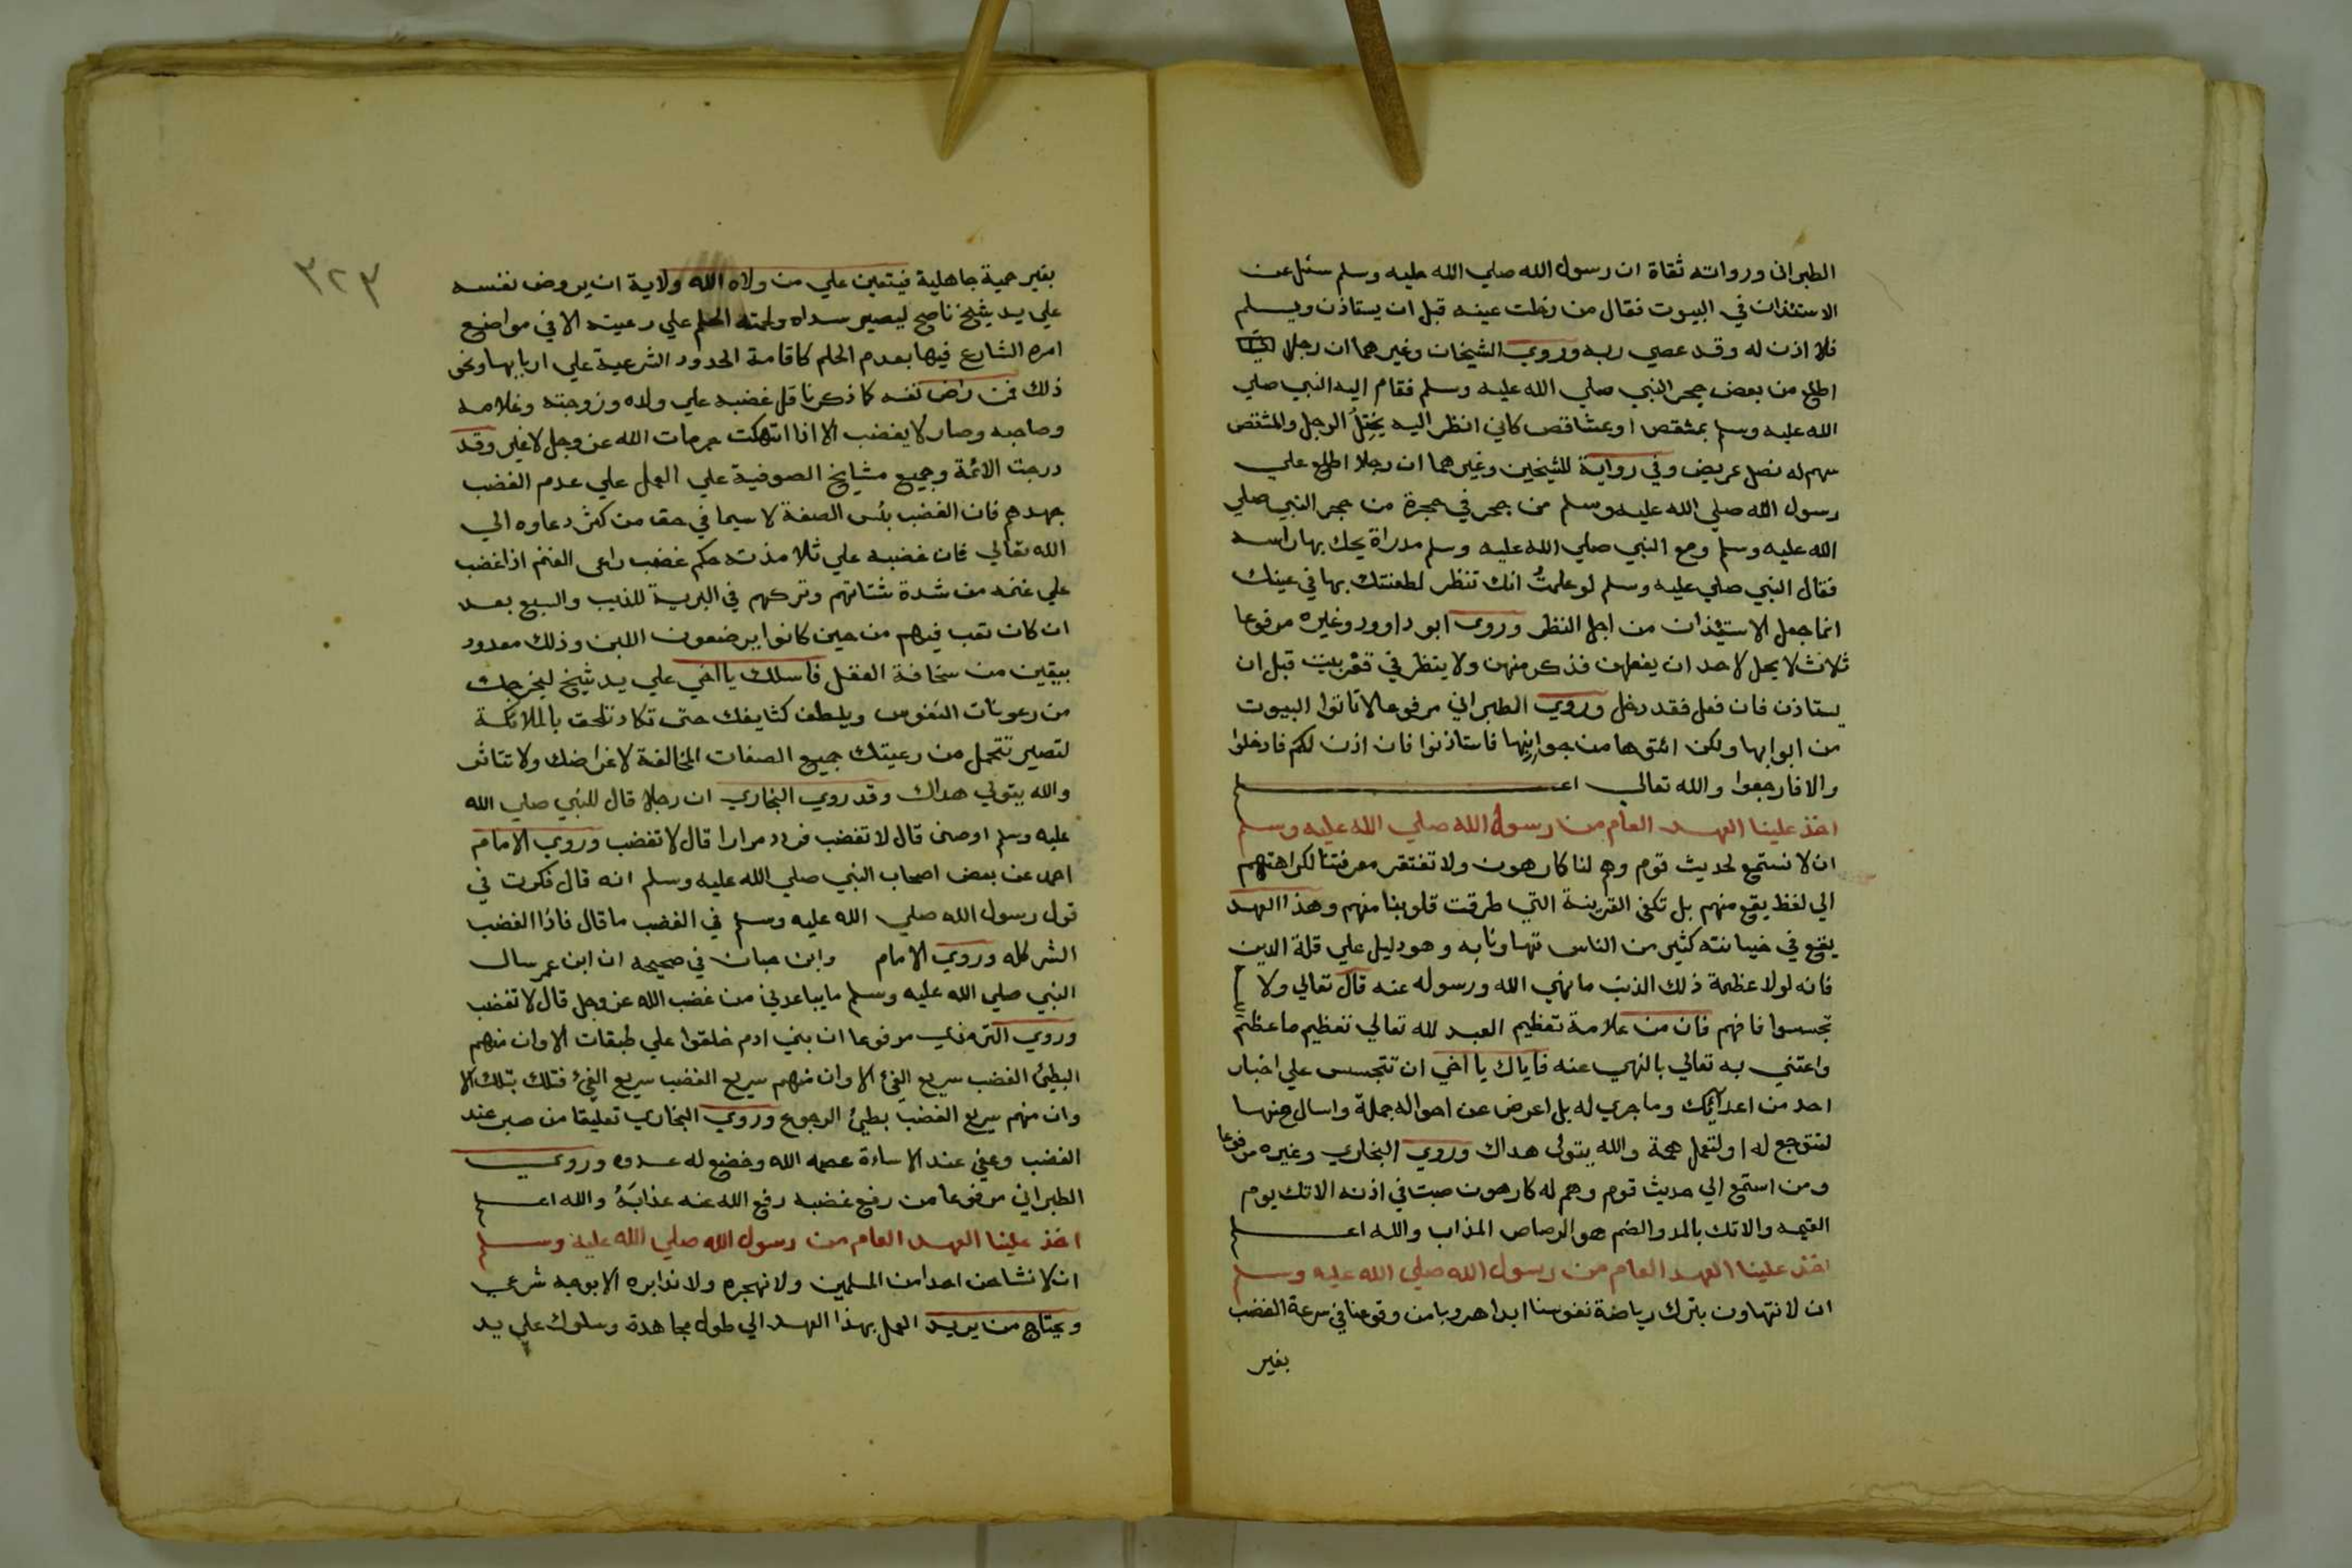 الطبراني ورواته ثقاة ان رسول الله صلي الله عليه وسلم سئل عن
الاستئذان في البيوت فقال من دخلت عينه قبل ان يستاذن ويسلم
فلا اذن له وقد عصي ربه وروي الشيخان وغيرهما ان رجلا
اطلع من بعض حجر النبي صلي الله عليه وسلم فقام اليه النبي صلي
الله عليه وسلم بمشقص او بمشاقص كاني انظر اليه يختل الرجل والمشقص
سهم له نصل عريض وفي رواية للشيخين وغيرهما ان رجلا اطلع علي
رسول الله صلي الله عليه وسلم من جحر في حجرة من حجر النبي صلي
الله عليه وسلم ومع النبي صلي الله عليه وسلم مدراة يحك بها راسه
فقال النبي صلي عليه وسلم لو علمت انك تنظر لطعنتك بها في عينك
انما جعل الاستئذان من اجل النظر وروي ابو داوود وغيره مرفوعا
ثلاث لا يحل لاحد ان يفعلهن فذكر منهن ولا ينظر في قعر بيت قبل ان
يستاذن فان فعل فقد دخل وروي الطبراني مرفوعا لا تاتوا البيوت
من ابوابها ولكن ائتوها من جوانبها فاستاذنوا فان اذن لكم فادخلوا
والا فارجعوا والله تعالي اعلم
اخذ علينا العهد العام من رسول الله صلي الله عليه وسلم
ان لا نستمع لحديث قوم وهم لنا كارهون ولا تفتقر معرفتنا لكراهتهم
الي لفظ يقع منهم بل تكفي القرينة التي طرقت قلوبنا منهم وهذا العهد
يقع في خيانته كثير من الناس تهاونا به وهو دليل علي قلة الدين
فانه لولا عظمة ذلك الذنب ما نهي الله ورسوله عنه قال تعالي ولا
تجسسوا فافهم فان من علامة تعظيم العبد لله تعالي تعظيم ما عظم
واعتني به تعالي بالنهي عنه فاياك يا اخي ان تتجسس علي اخبار
احد من اعدائك وما جري له بل اعرض عن احواله جملة واسال عنها
لتتوجع له او لتعمل همة والله يتولي هداك وروي البخاري وغيره مرفوعا
ومن استمع الي حديث قوم وهم له كارهون صبت في اذنه الانك يوم
القيمه والانك بالمد والضم هو الرصاص المذاب والله اعلم
اخذ علينا العهد العام من رسول الله صلي الله عليه وسلم
ان لا نتهاون بترك رياضة نفوسنا ابدا هروبا من وقوعنا في سرعة الغضب
بغير
٣٢٣
بغير حمية جاهلية فيتعين علي من ولاه الله ولاية ان يروض نفسه
علي يد شيخ ناصح ليصير سداه ولحمته الحلم علي رعيته الا في مواضع
امره الشارع فيها بعدم الحلم كاقامة الحدود الشرعية علي اربابها ونحو
ذلك فمن راض نفسه كما ذكرنا قل غضبه علي ولده وزوجته وغلامه
وصاحبه وصار لا يغضب الا اذا انتهكت حرمات الله عز وجل لا غير وقد
درجت الائمة وجميع مشايخ الصوفية علي العمل علي عدم الغضب
جهدهم فان الغضب بئس الصفة لا سيما في حق من كثر دعاوه الي
الله تعالي فان غضبه علي تلامذته حكم غضب راعي الغنم اذا غضب
علي غنمه من شدة شتاتهم وتركهم في البرية للذيب والسبع بعد
ان كان تعب فيهم من حين كانوا يرضعون اللبن وذلك معدود
بيقين من سخافة العقل فاسلك يا اخي علي يد شيخ ليخرجك
من رعونات النفوس ويلطف كثايفك حتي تكاد تلحق بالملائكة
لتصير تتحمل من رعيتك جميع الصفات المخالفة لاغراضك ولا تتاثر
والله يتولي هداك وقد روي البخاري ان رجلا قال للنبي صلي الله
عليه وسلم اوصني قال لا تغضب فردد مرارا قال لا تغضب وروي الامام
احمد عن بعض اصحاب النبي صلي الله عليه وسلم انه قال فكرت في
قول رسول الله صلي الله عليه وسلم في الغضب ما قال فاذا الغضب
الشر كله وروي الامام وابن حبان في صحيحه ان ابن عمر سال
النبي صلي الله عليه وسلم ما يباعدني من غضب الله عز وجل قال لا تغضب
وروي الترمذي مرفوعا ان بني ادم خلقوا علي طبقات الا وان منهم
البطئ الغضب سريع الفئ الا وان منهم سريع الغضب سريع الفئ فتلك بتلك الا
وان منهم سريع الغضب بطئ الرجوع وروي البخاري تعليقا من صبر عند
الغضب وعفي عند الاساءة عصمه الله وخضع له عدوه وروي
الطبراني مرفوعا من رفع غضبه رفع الله عنه عذابه والله اعلم
اخذ علينا العهد العام من رسول الله صلي الله عليه وسلم
ان لا نشاحن احدا من المسلمين ولا نهجره ولا ندابره الا بوجه شرعي
ويحتاج من يريد العمل بهذا العهد الي طول مجاهدة وسلوك علي يد